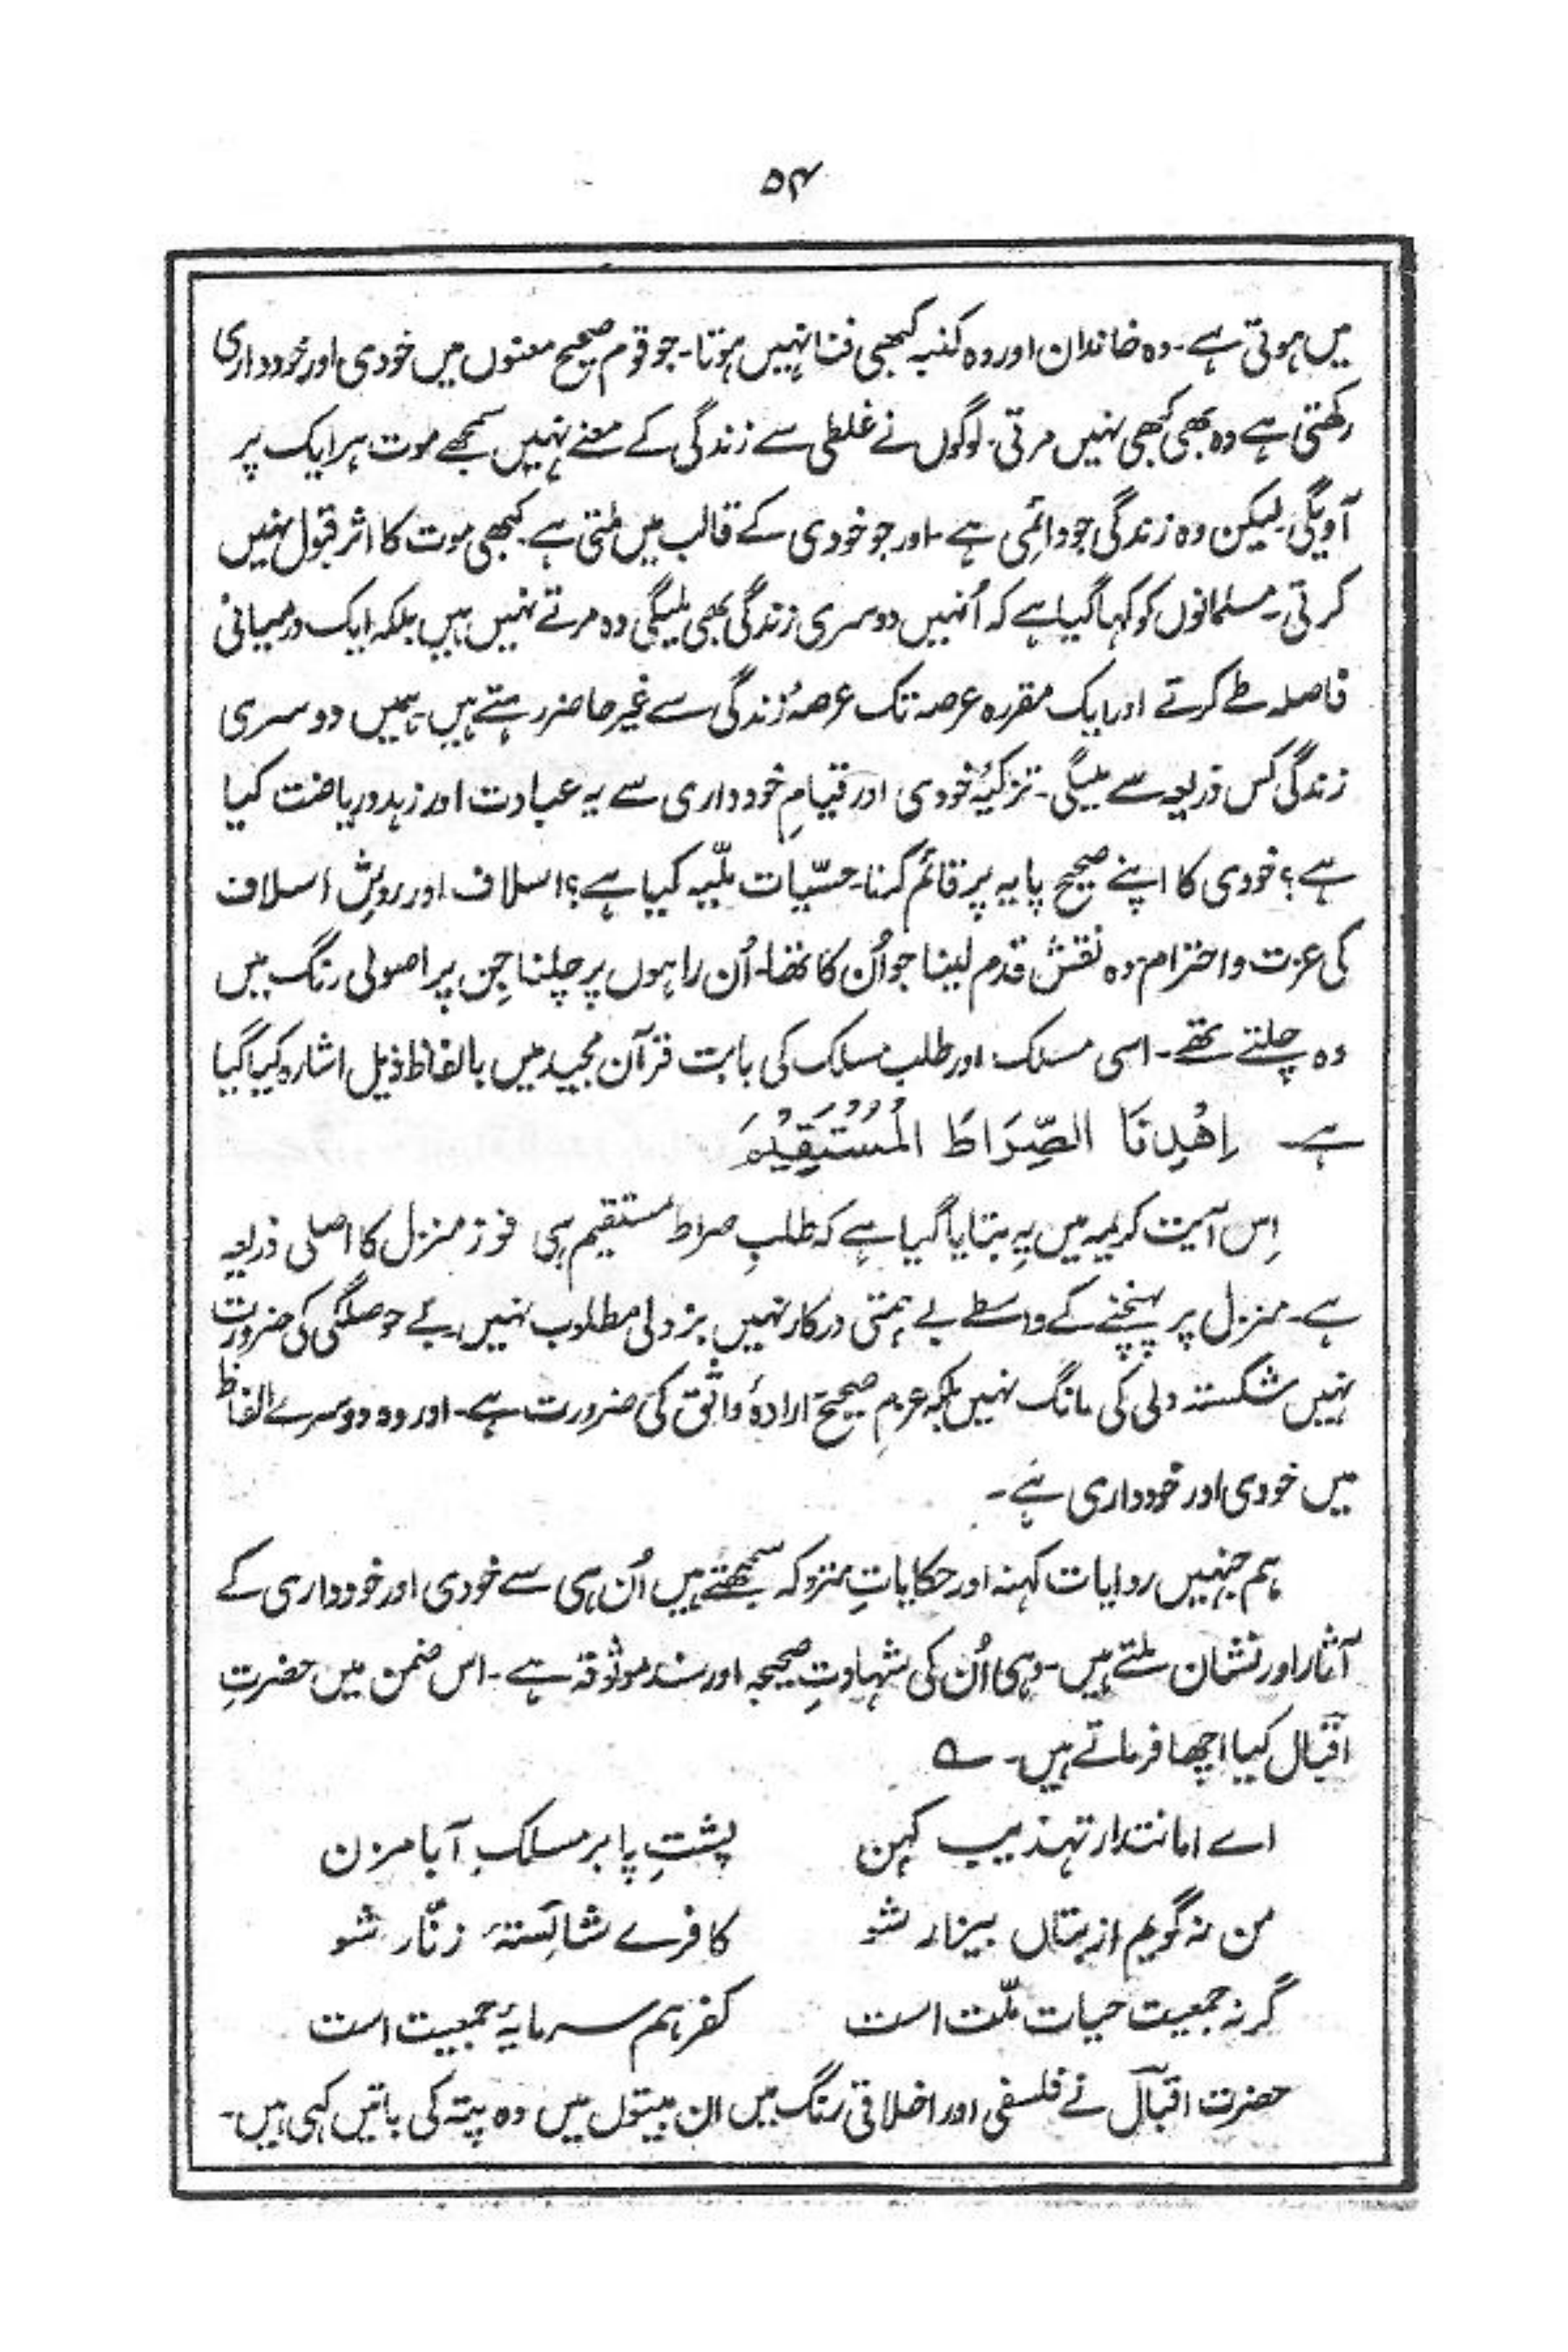 ۵۴
میں ہوتی ہے۔ وہ خاندان اور وہ کنبہ کبھی فنا نہیں ہوتا۔ جو قوم صحیح معنوں میں خودی اور خودداری
رکھتی ہے وہ بھی کبھی نہیں مرتی۔ لوگوں نے غلطی سے زندگی کے معنے نہیں سمجھے موت ہر ایک پر
آویگی۔ لیکن وہ زندگی جو دائمی ہے۔ اور جو خودی کے قالب میں ملتی ہے۔ کبھی موت کا اثر قبول نہیں
کرتی۔ مسلمانوں کو کہا گیا ہے کہ اُنہیں دوسری زندگی بھی ملیگی وہ مرتے نہیں ہیں بلکہ ایک درمیانی
فاصلہ طے کرتے اور ایک مقررہ عرصہ تک عرصۂ زندگی سے غیر حاضر رہتے ہیں۔ ہمیں دوسری
زندگی کس ذریعہ سے ملیگی۔ تزکیۂ خودی اور قیامِ خودداری سے یہ عبادت اور زہد و ریاضت کیا
ہے؟ خودی کا اپنے صحیح پایہ پر قائم کرنا۔ حسّیات ملّیہ کیا ہے؟ اسلاف اور روشِ اسلاف
کی عزت و احترام۔ وہ نقش قدم لینا جو اُن کا تھا۔ اُن راہوں پر چلنا جِن پر اصولی رنگ میں
وہ چلتے تھے۔ اسی مسلک اور طلب مسلک کی بابت قرآن مجید میں بالفاظ ذیل اشارہ کیا گیا
ہے۔ اِهْدِنَا الصِّرَاطَ الْمُسْتَقِيْمَ
اِس آیت کریمہ میں یہ بتایا گیا ہے کہ طلبِ صراط مستقیم ہی فوز منزل کا اصلی ذریعہ
ہے۔ منزل پر پہنچنے کے واسطے بے ہمتی درکار نہیں بزدلی مطلوب نہیں۔ بے حوصلگی کی ضرورت
نہیں شکستہ دلی کی مانگ نہیں بلکہ عزمِ صحیح ارادۂ واثق کی ضرورت ہے۔ اور وہ دوسرے الفاظ
میں خودی اور خودداری ہے۔
ہم جنہیں روایات کہنہ اور حکایاتِ متروکہ سمجھتے ہیں اُن ہی سے خودی اور خودداری کے
آثار اور نشان ملتے ہیں۔ وہی اُن کی شہادتِ صحیحہ اور سند موثوقہ ہے۔ اس ضمن میں حضرتِ
اقبال کیا اچھا فرماتے ہیں۔ ؎
اے امانتدار تہذیب کہن پشتِ پا بر مسلکِ آبا مزن
من نہ گویم از بتاں بیزار شو کافرے شائستۂ زنّار شو
گر نہ جمعیت حیات ملّت است کفر ہم سرمایۂ جمعیت است
حضرت اقبال نے فلسفی اور اخلاقی رنگ میں ان بیتوں میں وہ پتہ کی باتیں کہی ہیں۔